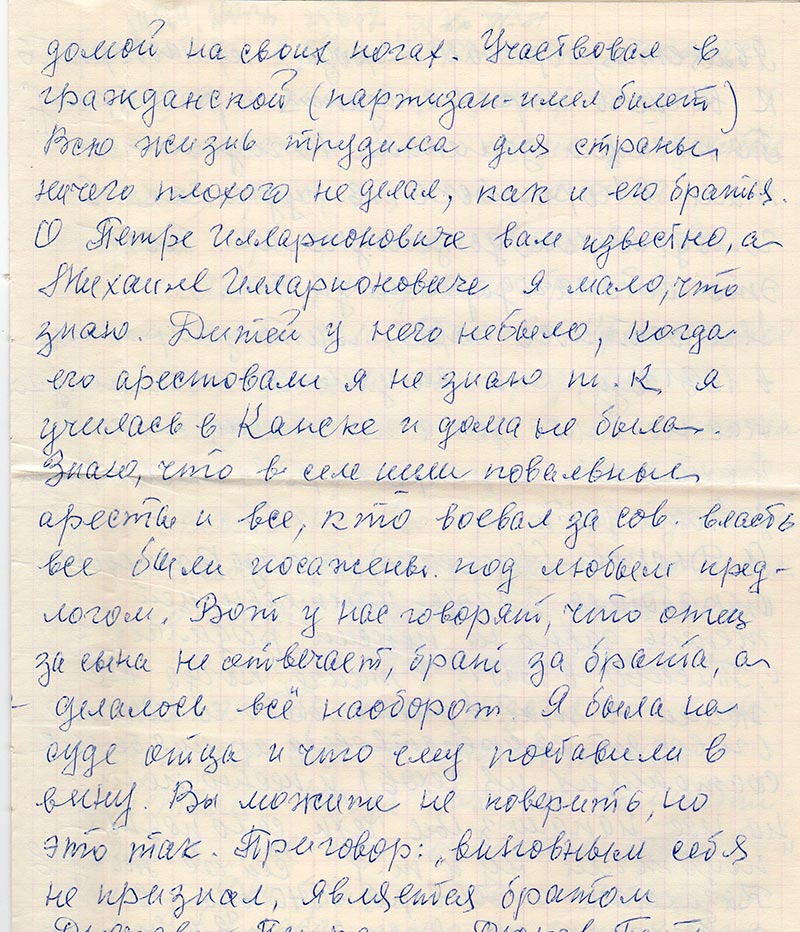 домой на своих ногах. Участвовал в
гражданской (партизан-имел билет)
Всю жизнь трудился для страны
ничего плохого не делал, как и его братья.
О Петре Илларионовиче вам известно, а
Михаиле Илларионовиче я мало, что
знаю. Дитей у него небыло, когда
его арестовали я не знаю т.к. я
училась в Канске и дома не была.
Знаю, что в селе были повальные
аресты и все, кто воевал за сов. власть
все были посажены. под любым пред-
логом. Вот у нас говорят, что отец
за сына не отвечает, брат за брата, а
делалось всё наоборот. Я была на
суде отца и что ему поставили в
вину. Вы можите не поверить, но
это так. Приговор: „виновным себя
не признал, является братом